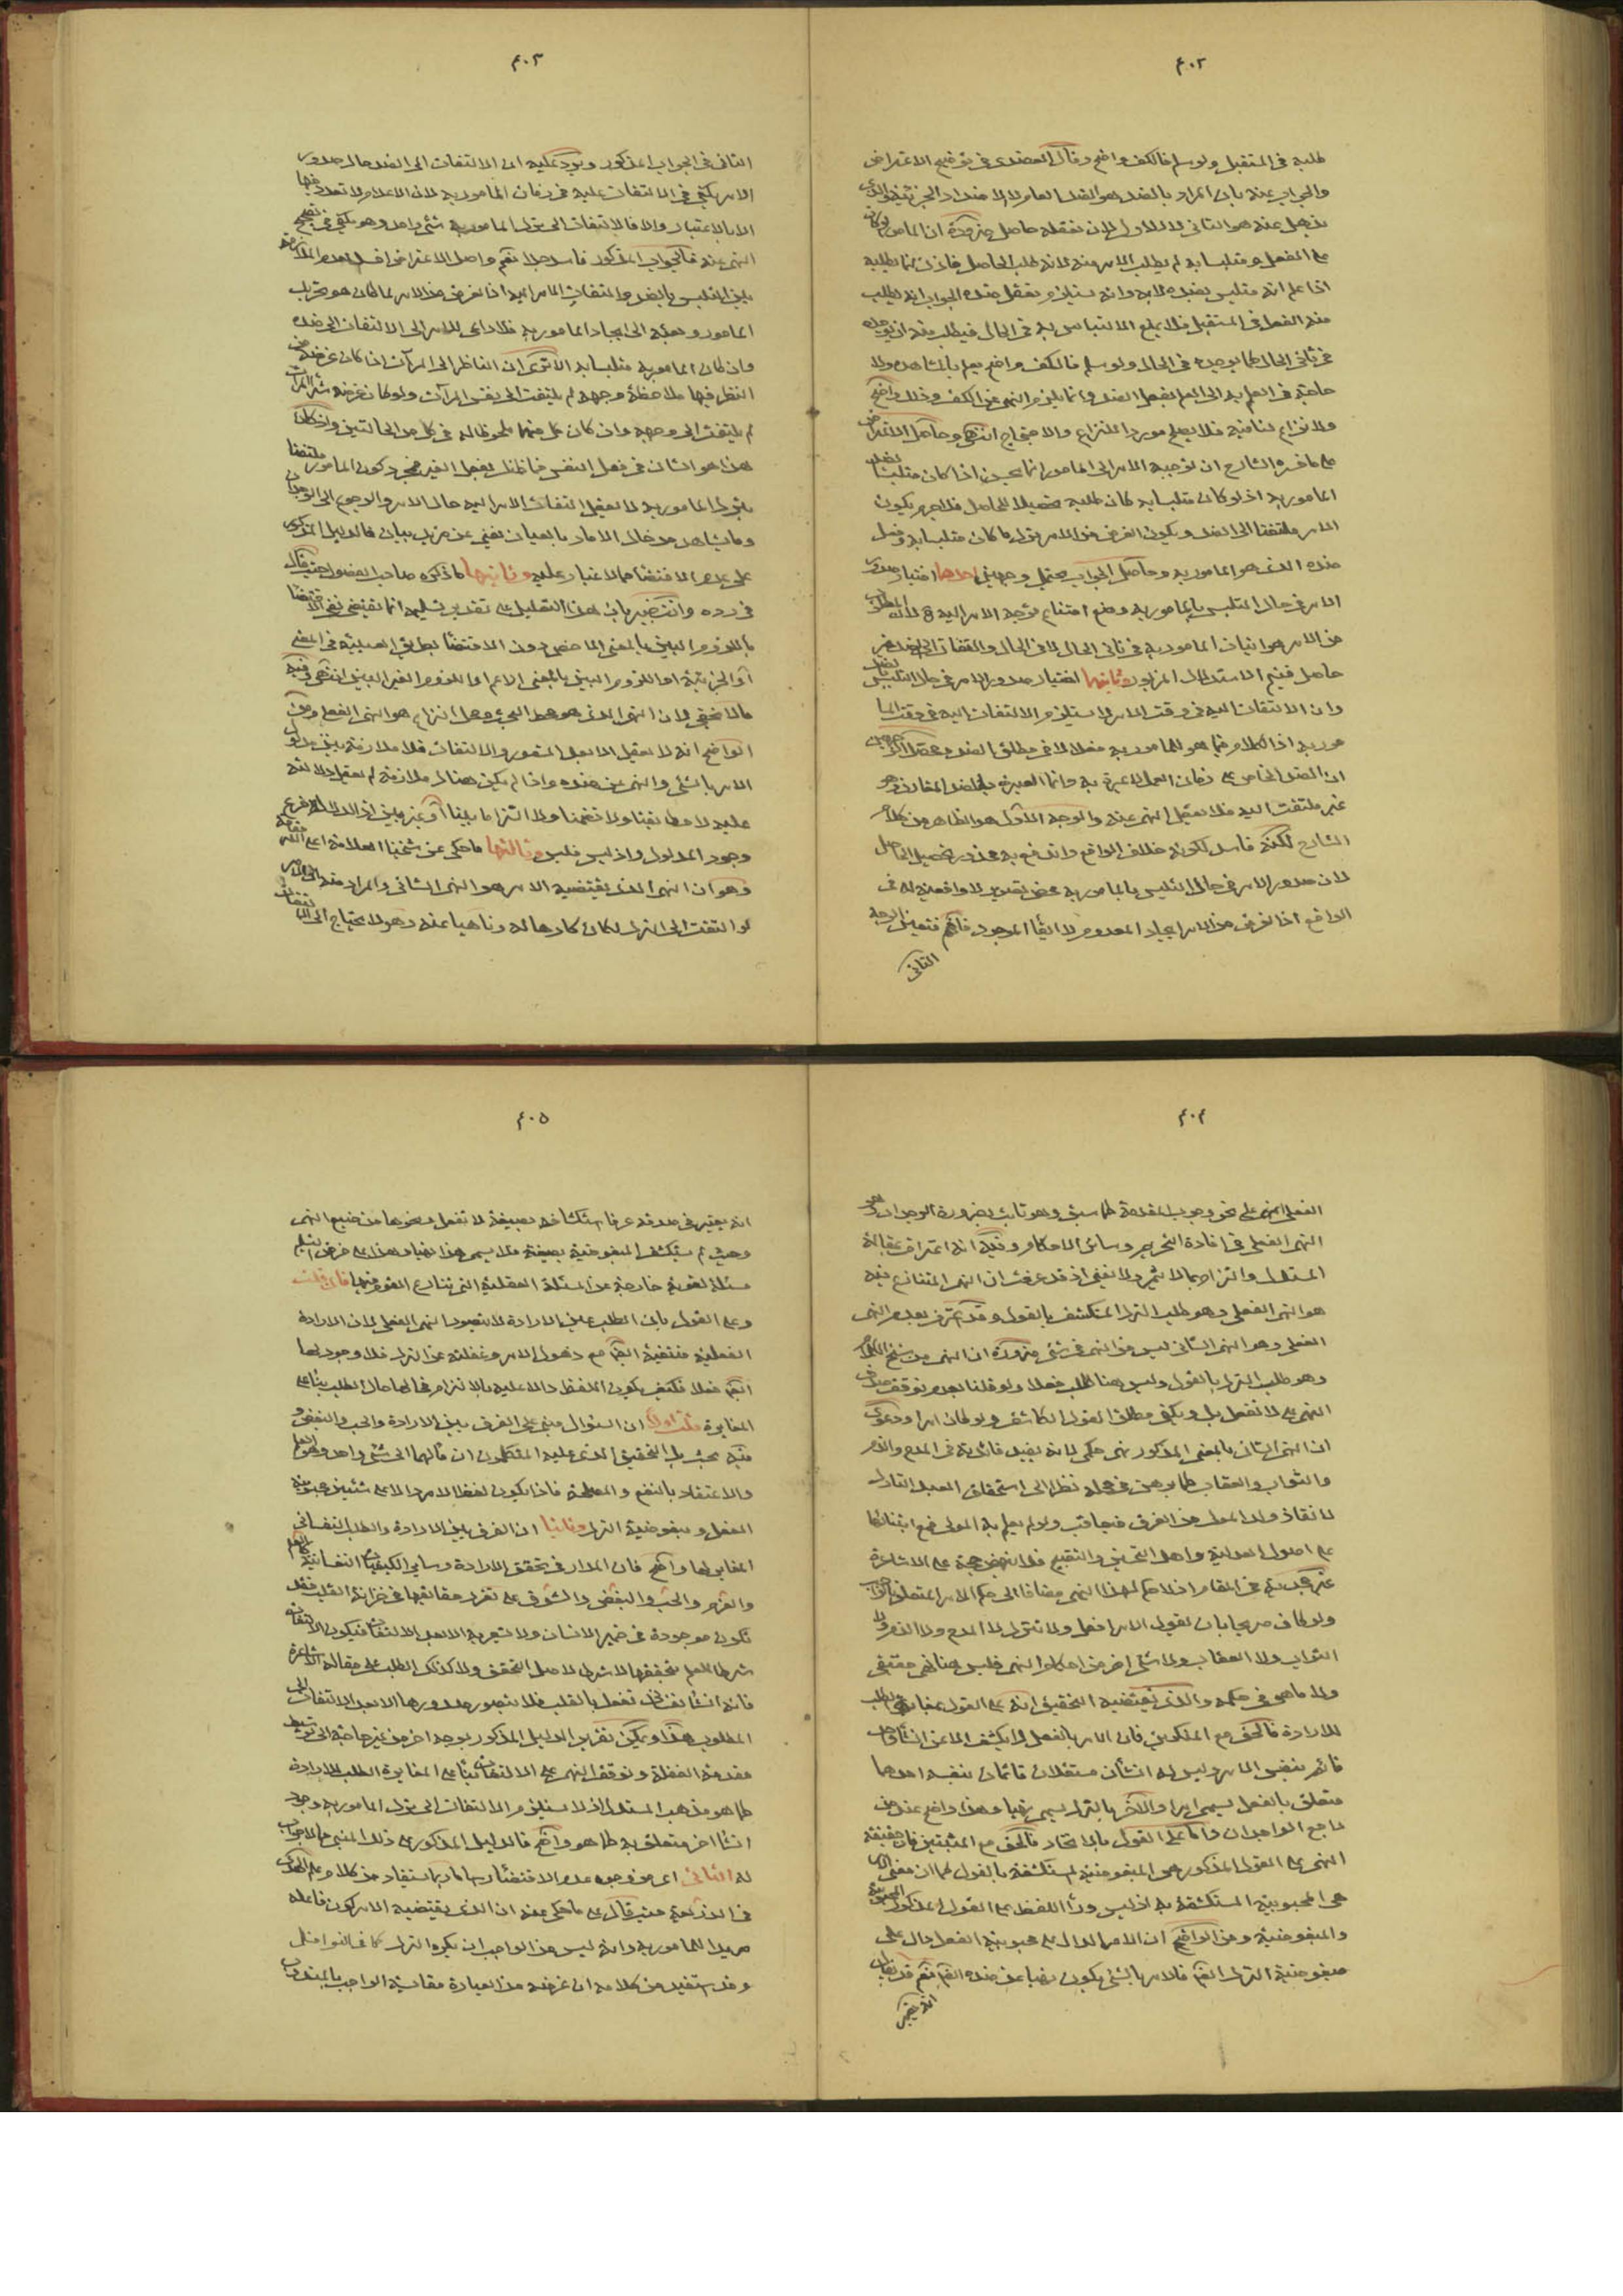 ٤٠٢
طلبه فى المستقبل ولو سلم فالكف واضح وقال العضدى فى توضيح الاعتراض
والجواب عنه بان المراد بالضد هو الضد العام لا الاضداد الجزئية والذى
يذهل عنه هو الثانى لا الاول لان تعقله حاصل ضرورة ان المامور لو كان
على الفعل ومتلبسا به لم يطلب الامر منه لانه طلب الحاصل فاذن انما يطلبه
اذا علم انه متلبس بضده لا به وانه يستلزم تعقل ضده الجواب انه يطلب
منه الفعل فى المستقبل فلا يمنع الالتباس به فى الحال فيطلب منه ان يوجده
فى ثانى الحال كما يوجده فى الحال ولو سلم فالكف واضح يعلم بالمشاهدة ولا
حاجة فى العلم به الى العلم بفعل الضد وانما يلزم النهى عن الكف وذلك واضح
ولا نزاع لنا فيه فلا يصلح موردا للنزاع والاحتجاج انتهى وحاصل الاعتراض
على ما فسره الشارح ان توجيه الامر الى المامور انما يحسن اذا كان متلبسا بضد
المامور به اذ لو كان متلبسا به كان طلبه تحصيلا للحاصل فلا جرم يكون
الامر ملتفتا الى الضد ويكون الغرض من الامر ترك ما كان متلبسا به وفعل
ضده الذى هو المامور به وحاصل الجواب يحتمل وجهين احدهما اختيار صدور
الامر فى حال التلبس بالمامور به ومنع امتناع توجه الامر اليه ح لان المطلوب
من الامر هو اتيان المامور به فى ثانى الحال لا فى الحال والتفات الى الضد غير
حاصل فيتم الاستدلال المزبور وثانيهما اختيار صدور الامر فى حال التلبس بالضد
وان الالتفات اليه فى وقت الامر لا يستلزم الالتفات اليه فى وقت الما
مور به اذ الكلام فيما هو للمامور به فعلا لا فى مطلق الضد
ان الضد الخاص على زمان العمل لا عبرة به وانما العبرة بالضد المقارن وهو
غير ملتفت اليه فلا يعقل النهى عنه والوجه الاول هو الظاهر من كلام
الشارح لكنه فاسد لكونه خلاف الواقع واندفع به محذور تحصيل الحاصل
لان صدور الامر فى حال التلبس بالمامور به محض تصوير لا واقعية له فى
الواقع اذ الغرض من الامر ايجاد المعدوم لا ابقاء الموجود فافهم فتعين الوجه
الثانى
٤٠٣
الثانى فى الجواب المذكور ويرد عليه ان الالتفات الى الضد حال صدور
الامر يكفى فى الالتفات عليه فى زمان المامور به لان الاعلام لا تعدد فيها
الا بالاعتبار والا فالالتفات الى ترك المامور به شئ واحد وهو يكفى فى تصحيح
النهى عنه فالجواب المذكور فاسد جدا نعم واصل الاعتراض افسد لعدم الملازمة
بين التلبس بالضد والتفات الامر اليه اذ الغرض من الامر لما كان هو تقريب
المامور وبعثه الى ايجاد المامور به فلا داعى للامر الى الالتفات الى ضده
وان كان المامور به متلبسا به الا ترى ان الناظر الى المرآت اذا كان غرضه من
النظر فيها ملاحظة وجهه لم يلتفت الى نفس المرآت ولو كان غرضه شراء المرآت
لم يلتفت الى وجهه وان كان كل منهما ملحوظا له فى كل من الحالتين واذا كان
هذا هو الشان فى فعل النفس فما ظنك بفعل الغير فمجرد كون المامور ملتفتا
بترك المامور به لا يعقل التفات الامر اليه حال الامر والرجوع الى الوجدان
وما يشاهد من حال الاماد بالعيان تغنى عن مزيد بيان فالدليل المذكور
على عدم الاقتضاء مما لا غبار عليه وثانيها ما ذكره صاحب الفصول حيث قال
فى رده وانت خبير بان هذا التعليل على تقدير تسليمه انما يقتضى نفى الاقتضاء
باللزوم البين بالمعنى الاخص دون الاقتضاء بطريق العينية فى المعنى
او الجزئية او اللزوم البين بالمعنى الاعم او اللزوم الغير البين انتهى وفيه
ما لا يخفى لان النهى الذى هو محط البحث ومحل النزاع هو النهى الفعلى ومن
الواضح انه لا يعقل الا بعد التصور والالتفات فلا ملازمة بين مدلول
الامر بالشئ والنهى عن ضده واذا لم يكن هناك ملازمة لم يعقل دلالته
عليه لا مطابقيا ولا تضمنا ولا التزاما بينا او غير بين اذ الدلالة فرع
وجود المدلول واذ ليس فليس وثالثها ما حكى عن شيخنا العلامة اعلى الله مقامه
وهو ان النهى الذى يقتضيه الامر هو النهى الشانى والمراد منه ان الامر
لو التفت الى الترك لكان كارها له وناهيا عنه وهو لا يحتاج الى الالتفات
٤٠٤
الفعلى النهى على نحو وجوب المقدمة كما سبق وهو ثابت بضرورة الوجدان وهو
النهى الفعلى فى افادة التحريم وسائر الاحكام وفيه انه اعتراف بمقالة
المستدل والتزام بما لا يثمر ولا يغنى اذ قد عرفت ان النهى المتنازع فيه
هو النهى الفعلى وهو طلب الترك المنكشف بالقول وقد اعترف بعدم النهى
الفعلى وهو النهى الشانى ليس من النهى فى شئ ضرورة ان النهى من سنخ الكلام
وهو طلب الترك بالقول وليس هنا طلب فعلا ولو قلنا بعدم توقف صدق
النهى على لا تفعل بل ويكفى مطلق القول الكاشف ولو كان امرا ودعوى
ان النهى الشانى بالمعنى المذكور نهى حكمى لانه يفيد فائدته فى المدح والذم
والثواب والعقاب كما يرهن فى محله نظرا الى استحقاق العبد التارك
لانقاذ ولد المولى من الغرق فيعاقب ولو لم يعلم به المولى فمع ابتنائها
على اصول العدلية واهل التحسين والتقبيح فلا ينهض حجة على الاشاعرة
غير مجدية فى المقام اذ لا حكم لهذا النهى مضافا الى حكم الامر المتعلق بالواجب
ولو كان صريحا بان يقول الامر افعل ولا تترك لا المدح ولا الذم ولا
الثواب ولا العقاب ولا شئ اخر من احكام النهى فليس هنا نهى حقيقى
ولا ما هو فى حكمه والذى يقتضيه التحقيق انه على القول بمغايرة الطلب
للارادة فالحق مع المنكرين فان الامر بالفعل لا يكشف الا عن انشاء واحد
قائم بنفس الامر وليس له انشاءان مستقلان قائمان بنفسه احدهما
متعلق بالفعل يسمى امرا والاخر بالترك يسمى نهيا وهذا واضح عند من
راجع الوجدان واما على القول بالاتحاد فالحق مع المثبتين فان حقيقة
النهى على القول المذكور هى المبغوضية المستكشفة بالقول كما ان معنى الامر
هى المحبوبية المستكشفة به اذ ليس وراء اللفظ على القول المذكور الا المحبوبية
والمبغوضية ومن الواضح ان الامر الدال على محبوبية الفعل دال على
مبغوضية الترك ايضا فالامر بالشئ يكون نهيا عن ضده ايضا نعم قد يقال
انه يعتبر
٤٠٥
انه يعتبر فى صدقه عرفا استكشافه بصيغة لا تفعل ونحوها من صيغ النهى
وحيث لم ينكشف المبغوضية بصيغة فلا يسمى هذا نهيا وهذا على فرض التسليم
مسئلة لغوية خارجة عن المسئلة العقلية التى يتنازع القوم فيها فان قلت
وعلى القول بان الطلب عين الارادة لا يتصور النهى الفعلى لان الارادة
الفعلية منتفية ايضا مع ذهول الامر وغفلته عن الترك فلا وجود لها
ايضا فعلا فكيف يكون اللفظ دالا عليه بالالتزام فحالها حال الطلب بناء على
المغايرة قلت اولا ان السؤال مبنى على الفرق بين الارادة والحب والبغض و
فيه بحث بل التحقيق الذى عليه المتكلمون ان مآلهما الى شئ واحد وهو العلم
والاعتقاد بالنفع والمصلحة فاذا يكون لفظ الامر دالا على شيئين محبوبية
الفعل ومبغوضية الترك وثانيا ان الفرق بين الارادة والطلب النفسانى
المغاير لها واضح فان المدار فى تحقق الارادة وسائر الكيفيات النفسانية كالعلم
والعزم والحب والبغض والشوق على تقرر حقائقها فى خزانة القلب فقد
تكون موجودة فى ضمير الانسان ولا يشعر به الا بعد الالتفات فيكون الالتفات
شرطا للعلم بتحققها لا شرطا لاصل التحقق ولا كذلك الطلب على مقالة الاشاعرة
فانه انشاء نفسانى تفعل بالقلب فلا يتصور صدورها الا بعد الالتفات الى
المطلوب هذا ويمكن تقرير الدليل المذكور بوجه اخر من غير حاجة الى توسيط
مقدمة الغفلة وتوقف النهى على الالتفات بناء على المغايرة الطلب للارادة
كما هو مذهب المستدل اذ لا يستلزم الالتفات الى ترك المامور به وجود
انشاء اخر متعلق به كما هو واضح فالدليل المذكور على ذلك المبنى مما لا جواب
له الثانى اى من وجوه عدم الاقتضاء رسا ما ربما يستفاد من كلام علم الهدى
فى الذريعة حيث قال على ما حكى عنه ان الذى يقتضيه الامر كون فاعله
مريدا للمامور به وانه ليس من الواجب ان يكره الترك كما فى النوافل
وقد استفيد من كلامه ان غرضه من العبارة مقايسة الواجب بالمندوب